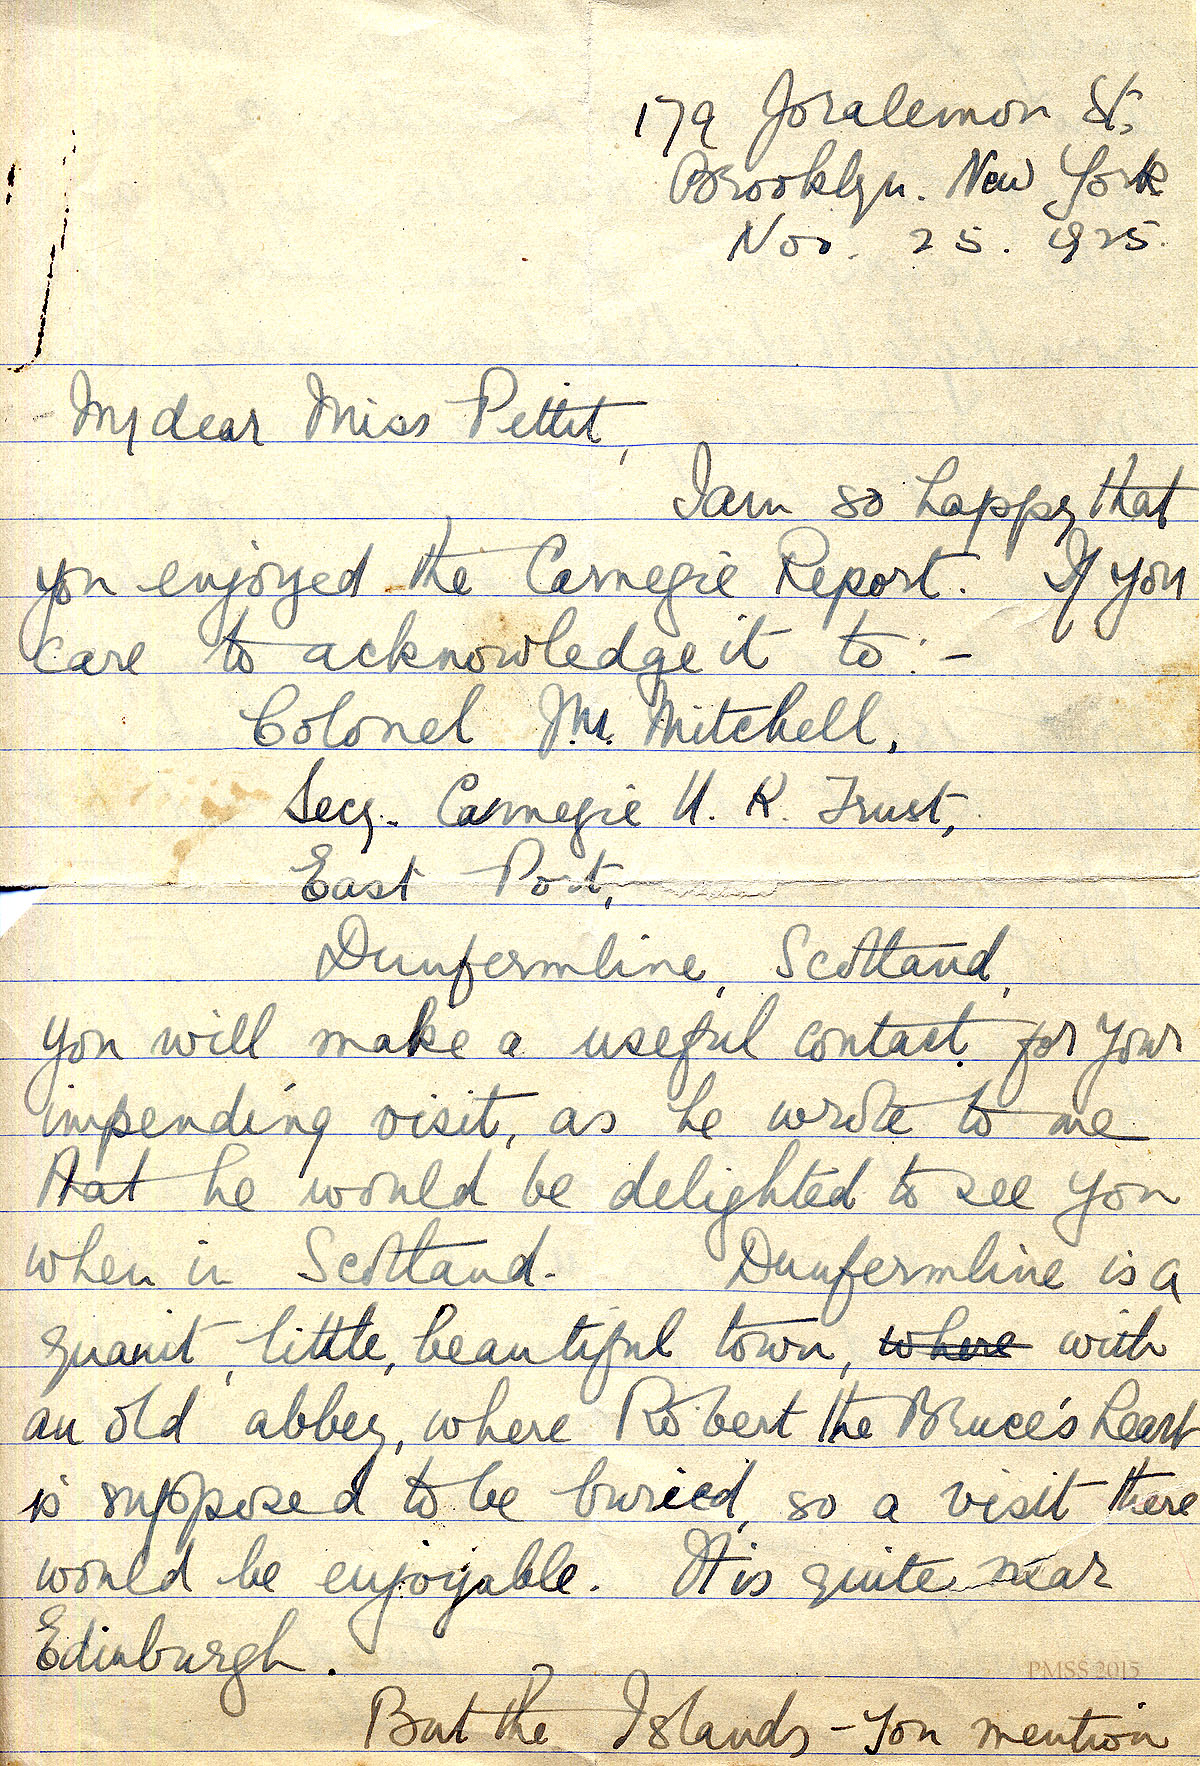 179 Joralemon St,
Brooklyn. New York
Nov. 25. 1925.
My dear Miss Pettit,
I am so happy that
you enjoyed the Carnegie Report. If you
care to acknowledge it to:-
Colonel M. Mitchell,
Secy. Carnegie U. K. Trust,
East Port,
Dunfermline, Scotland,
you will make a useful contact for your
impending visit, as he wrote to me
that he would be delighted to see you
when in Scotland. Dunfermline is a
quanit, little, beautiful town, where with
an old abbey, where Robert the Bruce's heart
is supposed to be buried, so a visit there
would be enjoyable. It is quite near
Edinburgh.
PMSS 2015
But the Islands - you mention